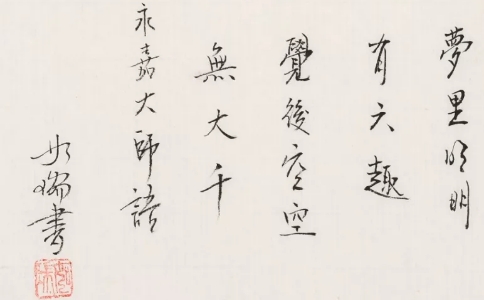 夢里明明
有六趣
覺後空空
無大千
永嘉大師語
如瑞書